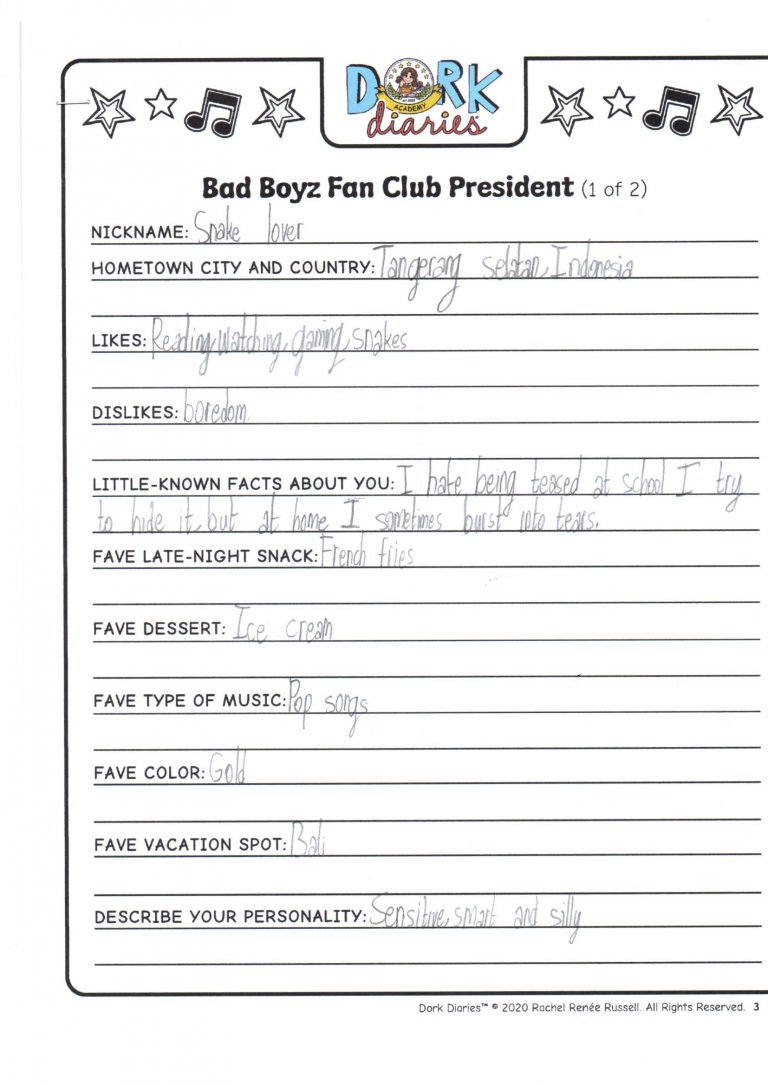 DORK
ACADEMY
diaries
Bad Boyz Fan Club President (1 of 2)
NICKNAME: Snake lover
HOMETOWN CITY AND COUNTRY: Tangerang selatan, Indonesia
LIKES: Reading, watching, gaming, snakes
DISLIKES: boredom
LITTLE-KNOWN FACTS ABOUT YOU: I hate being teased at school I try
to hide it, but at home I sometimes burst into tears.
FAVE LATE-NIGHT SNACK: French fries
FAVE DESSERT: Ice cream
FAVE TYPE OF MUSIC: Pop songs
FAVE COLOR: Gold
FAVE VACATION SPOT: Bali
DESCRIBE YOUR PERSONALITY: Sensitive, smart and silly
Dork Diaries™ © 2020 Rachel Renée Russell. All Rights Reserved. 3